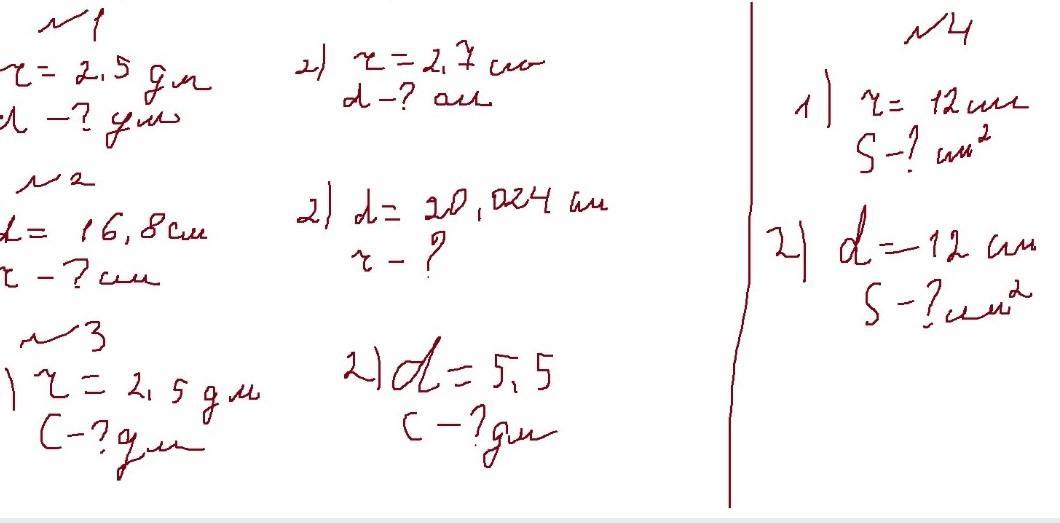 №1
r = 2,5 дм
d - ? дм
2) r = 2,7 см
d - ? см
№2
d = 16,8 см
r - ? см
2) d = 20,024 см
r - ?
№3
) r = 2,5 дм
C - ? дм
2) d = 5,5
C - ? дм
№4
1) r = 12 см
S - ? см²
2) d = 12 см
S - ? см²